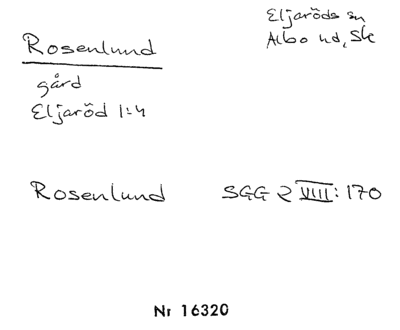 Rosenlund
Eljaröds sn
Albo hd, Sk
gård
Eljaröd 1:4
Rosenlund SGG 2 VIII: 170
Nr 16320